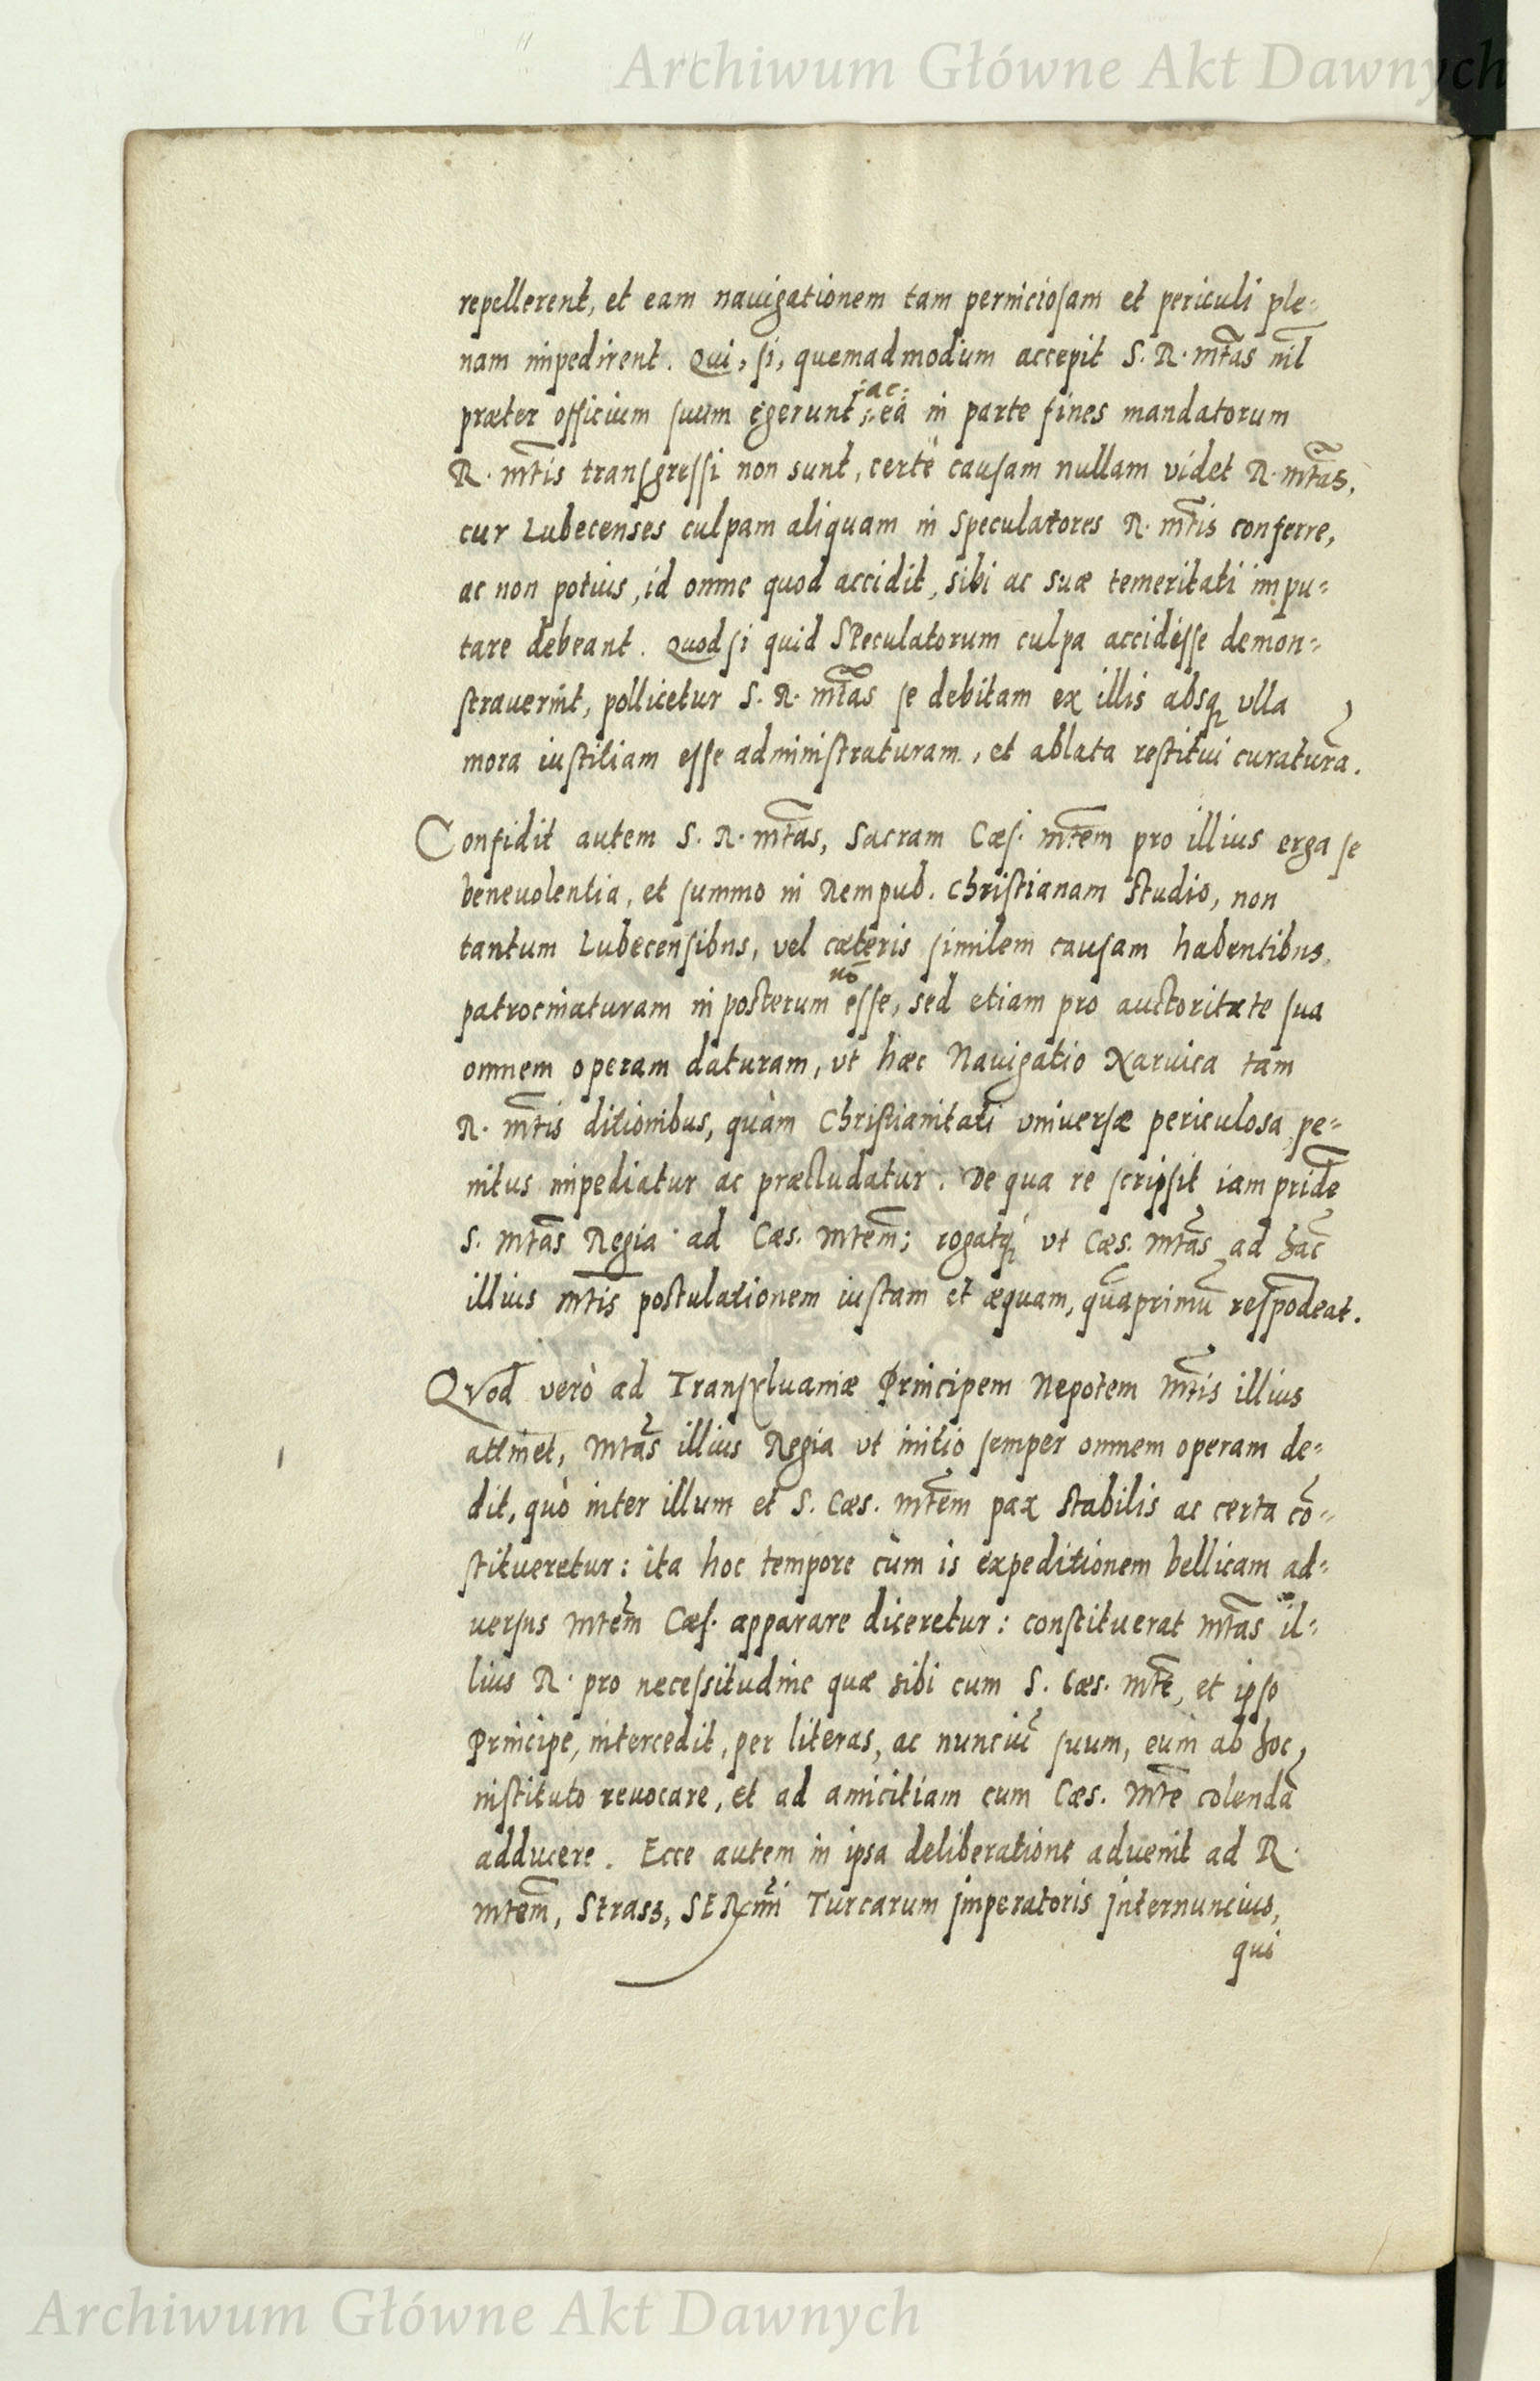 Archiwum Główne Akt Dawnych
repellerent, et eam nauigationem tam perniciosam et periculi ple-
nam impedirent. Qui, si, quemadmodum accepit S. R. mtas nil
præter officium suum egerunt, :ac: ea in parte fines mandatorum
R. mtis transgressi non sunt, certè causam nullam videt R. mtas,
cur Lubecenses culpam aliquam in Speculatores R. mtis conferre,
ac non potius, id omne quod accidit, sibi ac suæ temeritati impu-
tare debeant. Quod si quid Speculatorum culpa accidisse demon-
strauerint, pollicetur S. R. mtas se debitam ex illis absq ulla
mora iustitiam esse administraturam, et ablata restitui curaturā.
Confidit autem S. R. mtas, Sacram Cæs. mtem pro illius erga se
beneuolentia, et summo in Rempub. Christianam studio, non
tantum Lubecensibus, vel cæteris similem causam habentibus,
patrocinaturam in posterum nō esse, sed etiam pro auctoritate sua
omnem operam daturam, vt hæc Nauigatio Naruica tam
R. mtis ditionibus, quàm Christianitati vniuersæ periculosa pe-
nitus impediatur ac præcludatur. De qua re scripsit iam pridē
S. mtas Regia ad Cæs. mtem; rogatq vt Cæs. mtas ad hāc
illius mtis postulationem iustam et æquam, quāprimū respōdeat.
Qvod verò ad Transyluaniæ Principem Nepotem mtis illius
attinet, mtas illius Regia vt initio semper omnem operam de-
dit, quò inter illum et S. Cæs. mtem pax stabilis ac certa cō-
stitueretur: ita hoc tempore cùm is expeditionem bellicam ad-
versus mtem Cæs. apparare diceretur: constituerat mtas il-
lius R. pro necessitudine quæ sibi cum S. Cæs. mte, et ipso
Principe, intercedit, per literas, ac nunciū suum, eum ab hoc
instituto reuocare, et ad amicitiam cum Cæs. mte colendā
adducere. Ecce autem in ipsa deliberatione aduenit ad R.
mtem, Strass, SERmi Turcarum Imperatoris Internuncius,
qui
Archiwum Główne Akt Dawnych